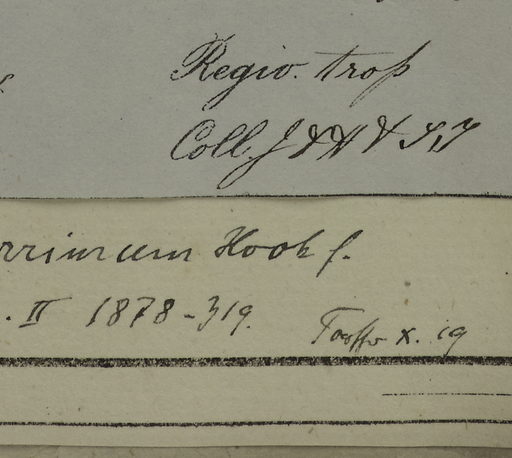 Regio. trop
Coll. J D H & T T
rrimum Hook f.
. II 1878-319.
x. 19